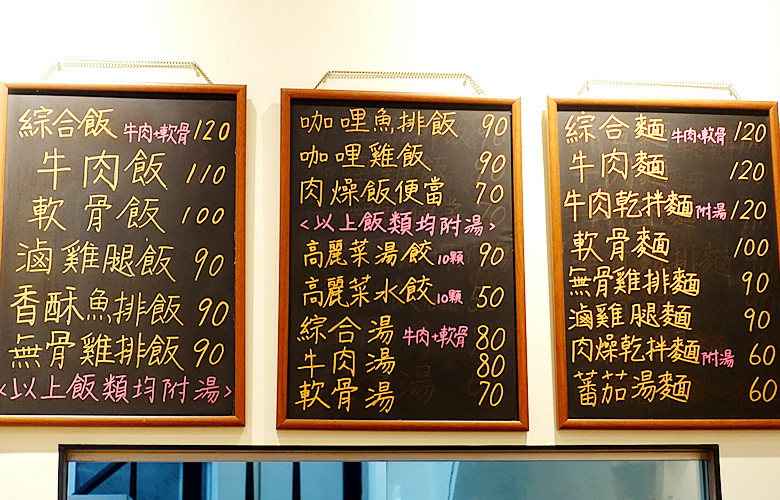 綜合飯 牛肉+軟骨 120
牛肉飯 110
軟骨飯 100
滷雞腿飯 90
香酥魚排飯 90
無骨雞排飯 90
<以上飯類均附湯>
咖哩魚排飯 90
咖哩雞飯 90
肉燥飯便當 70
<以上飯類均附湯>
高麗菜湯餃 10顆 90
高麗菜水餃 10顆 50
綜合湯 牛肉+軟骨 80
牛肉湯 80
軟骨湯 70
綜合麵 牛肉+軟骨 120
牛肉麵 120
牛肉乾拌麵 附湯 120
軟骨麵 100
無骨雞排麵 90
滷雞腿麵 90
肉燥乾拌麵 附湯 60
蕃茄湯麵 60